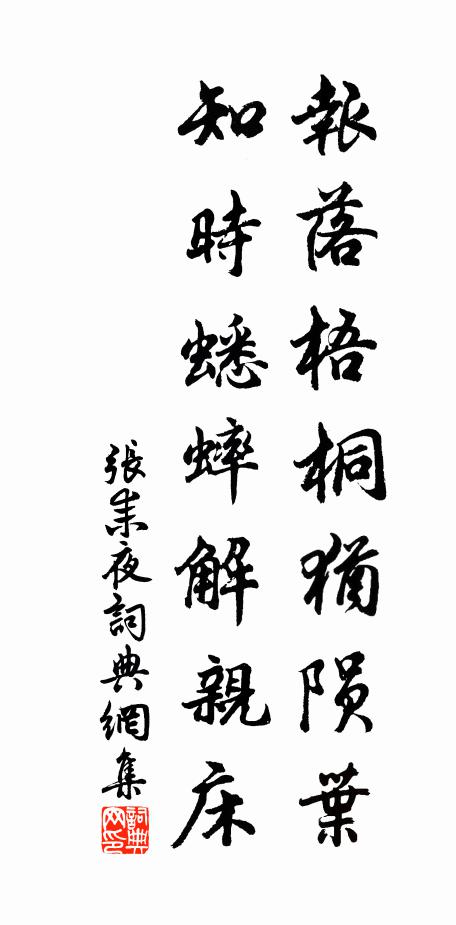 報落梧桐猶陨葉
知時蟋蟀解親床
張耒夜詞典網集
詞典
网印